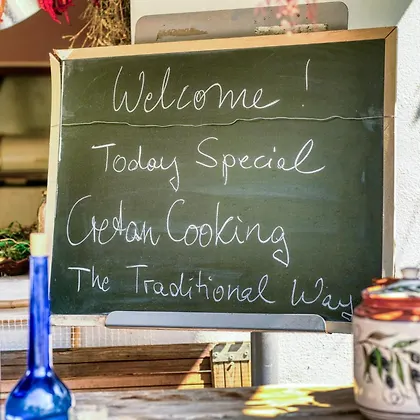 Welcome !
Today Special
Cretan Cooking
The Traditional Way